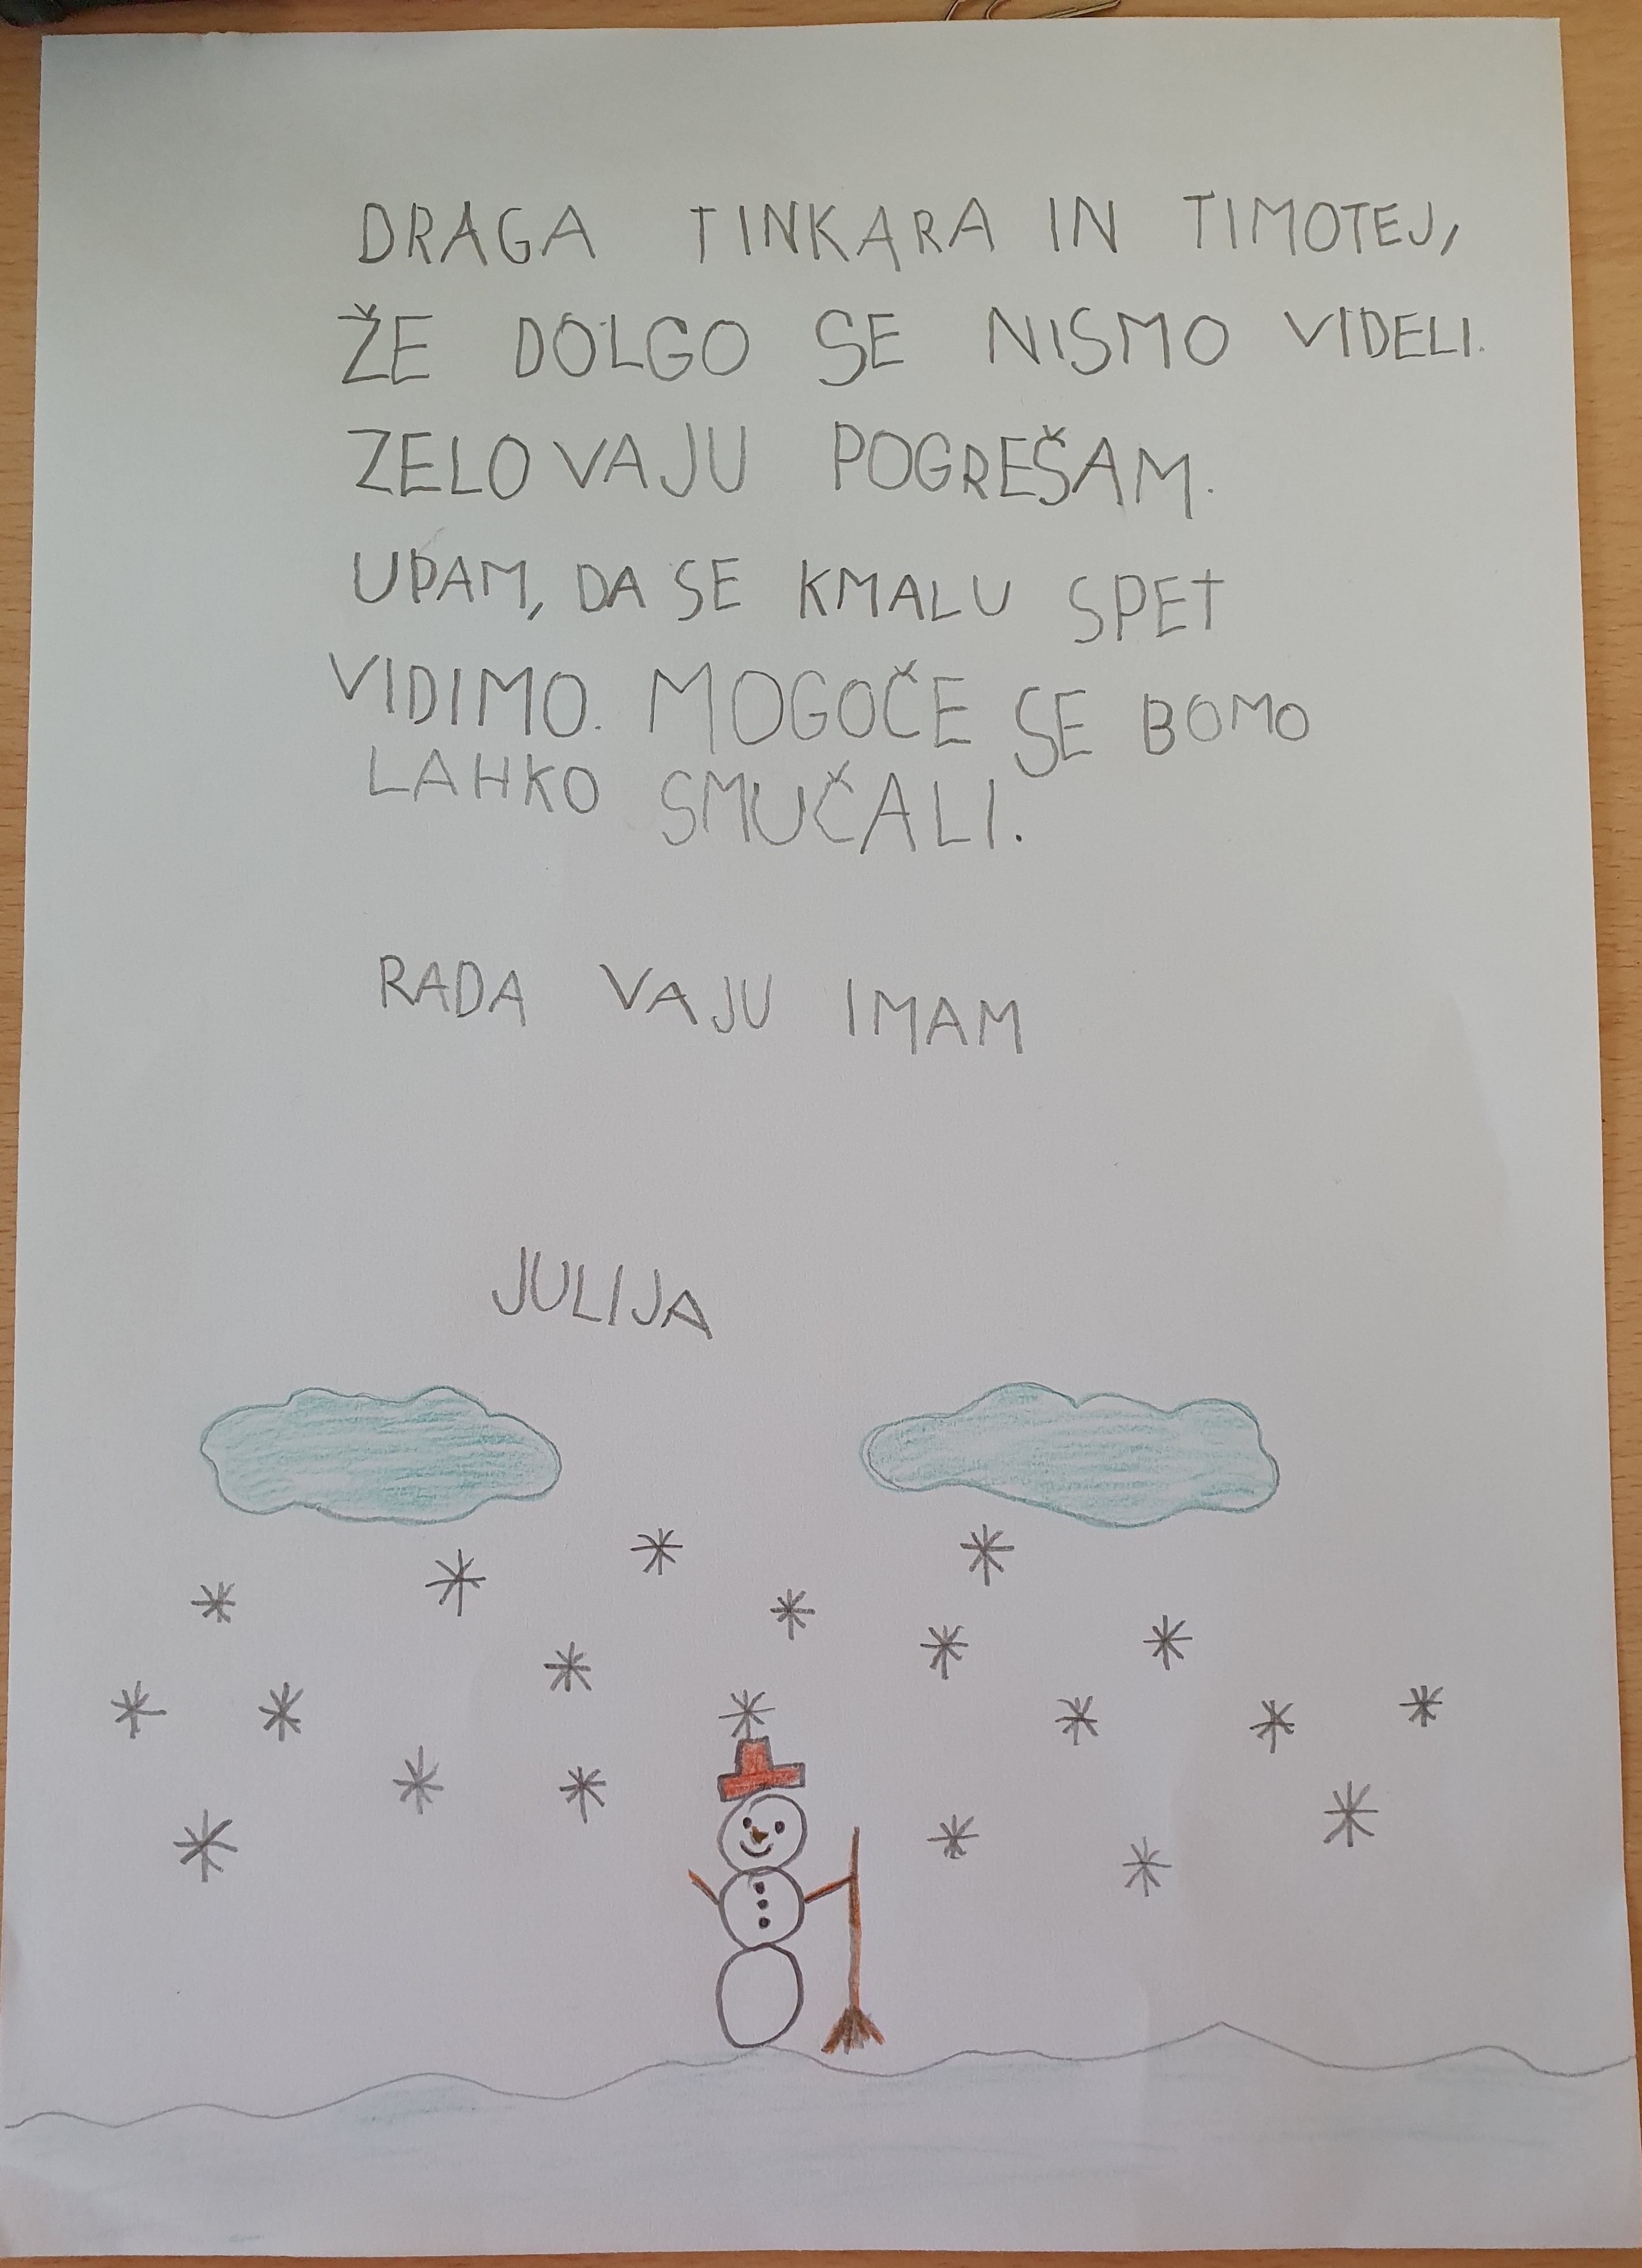 DRAGA TINKARA IN TIMOTEJ,
ŽE DOLGO SE NISMO VIDELI.
ZELO VAJU POGREŠAM.
UPAM, DA SE KMALU SPET
VIDIMO. MOGOČE SE BOMO
LAHKO SMUČALI.
RADA VAJU IMAM
JULIJA